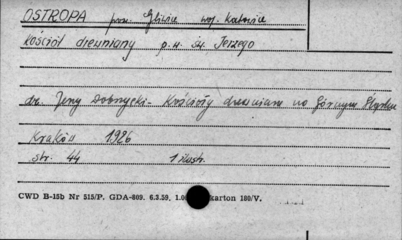 OSTROPA pow. Gliwice woj. Katowice
Kościół drewniany p.w. św. Jerzego
dr. Jerzy Dobrzycki - Kościoły drewniane na Górnym Śląsku
Kraków 1926
str. 44 1 ilustr.
CWD B-15b Nr 515/P. GDA-809. 6.3.59. karton 180/V.